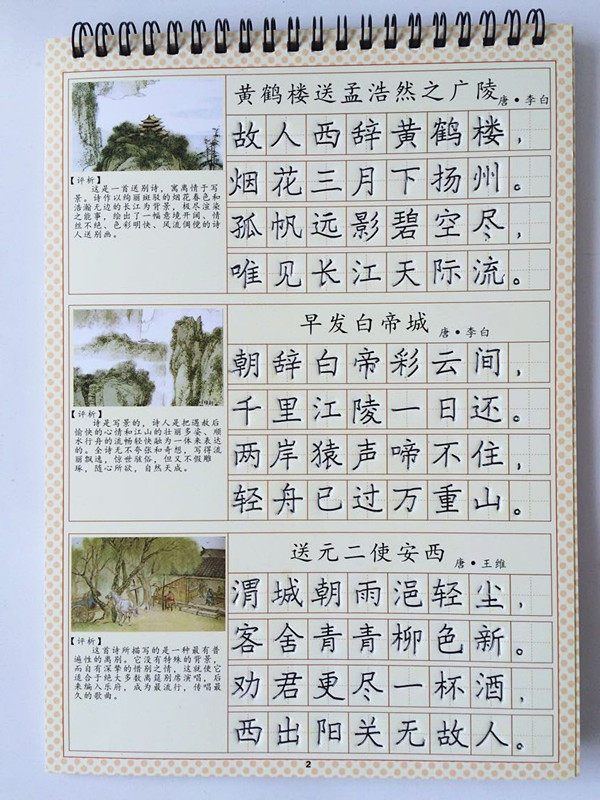 黄鹤楼送孟浩然之广陵
唐·李白
故人西辞黄鹤楼，
烟花三月下扬州。
孤帆远影碧空尽，
唯见长江天际流。
【评析】
这是一首送别诗，寓离情于写
景。诗作以绚丽斑驳的烟花春色和
浩瀚无边的长江为背景，极尽渲染
之能事，绘出了一幅意境开阔、情
丝不绝、色彩明快、风流倜傥的诗
人送别画。
早发白帝城
唐·李白
朝辞白帝彩云间，
千里江陵一日还。
两岸猿声啼不住，
轻舟已过万重山。
【评析】
诗是写景的，诗人是把遇赦后
愉快的心情和江山的壮丽多姿、顺
水行舟的流畅轻快融为一体来表达
的。全诗无不夸张和奇想，写得流
丽飘逸，惊世骇俗，但又不假雕
琢，随心所欲，自然天成。
送元二使安西
唐·王维
渭城朝雨浥轻尘，
客舍青青柳色新。
劝君更尽一杯酒，
西出阳关无故人。
【评析】
这首诗所描写的是一种最有普
遍性的离别。它没有特殊的背景，
而自有深挚的惜别之情，这就使它
适合于绝大多数离筵别席演唱，后
来编入乐府，成为最流行，传唱最
久的歌曲。
2